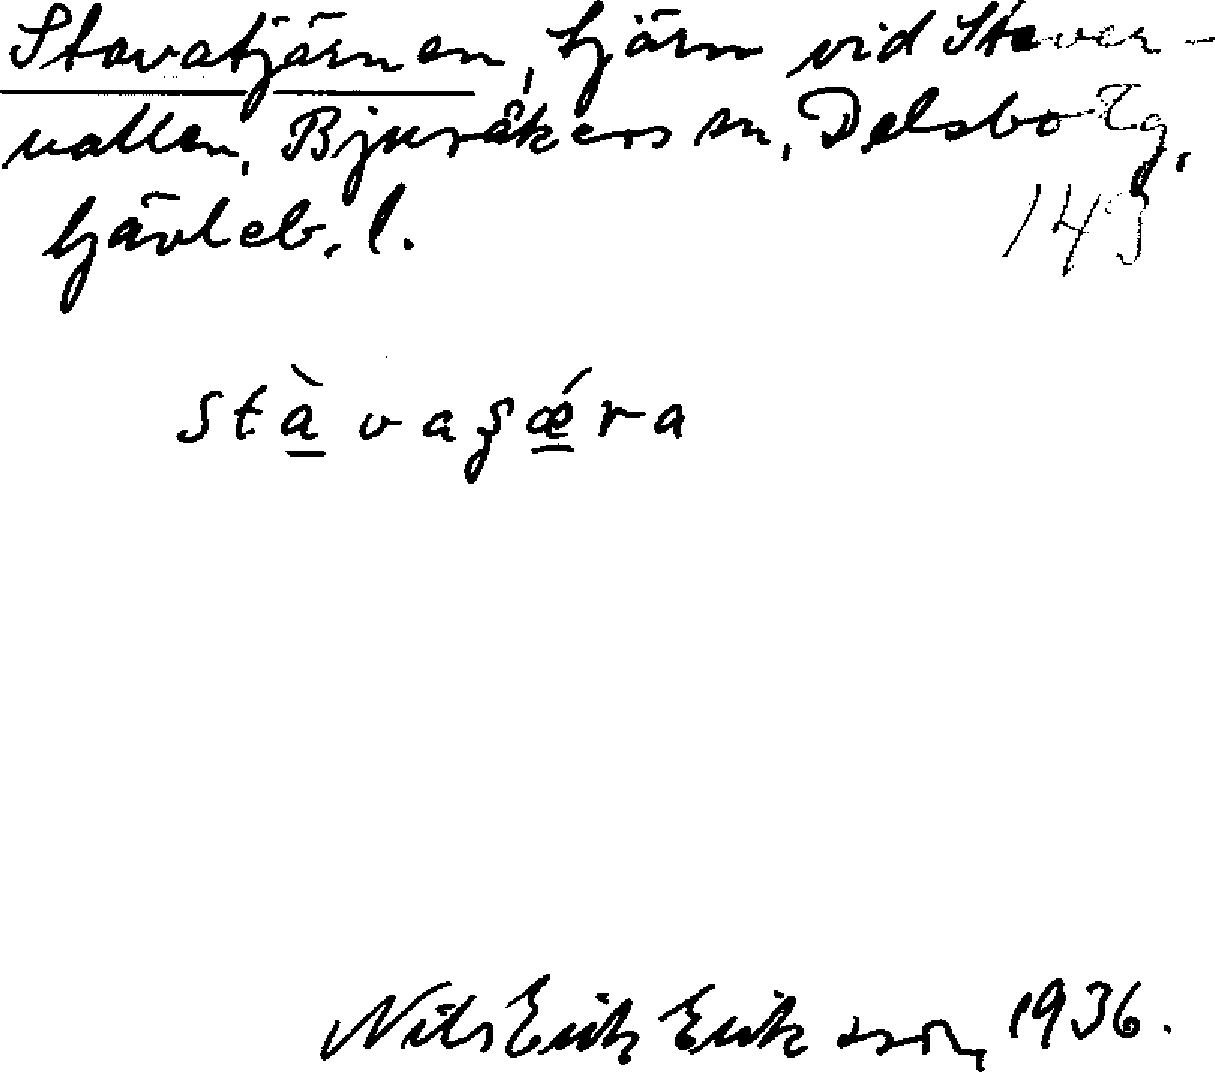 Stavatjärnen, tjärn vid Staver-
vallen, Bjuråkers sn, Delsbo tg,
Gävleb. l.
143
Stàvaʂǽra
Nils Erik Eriksson, 1936.